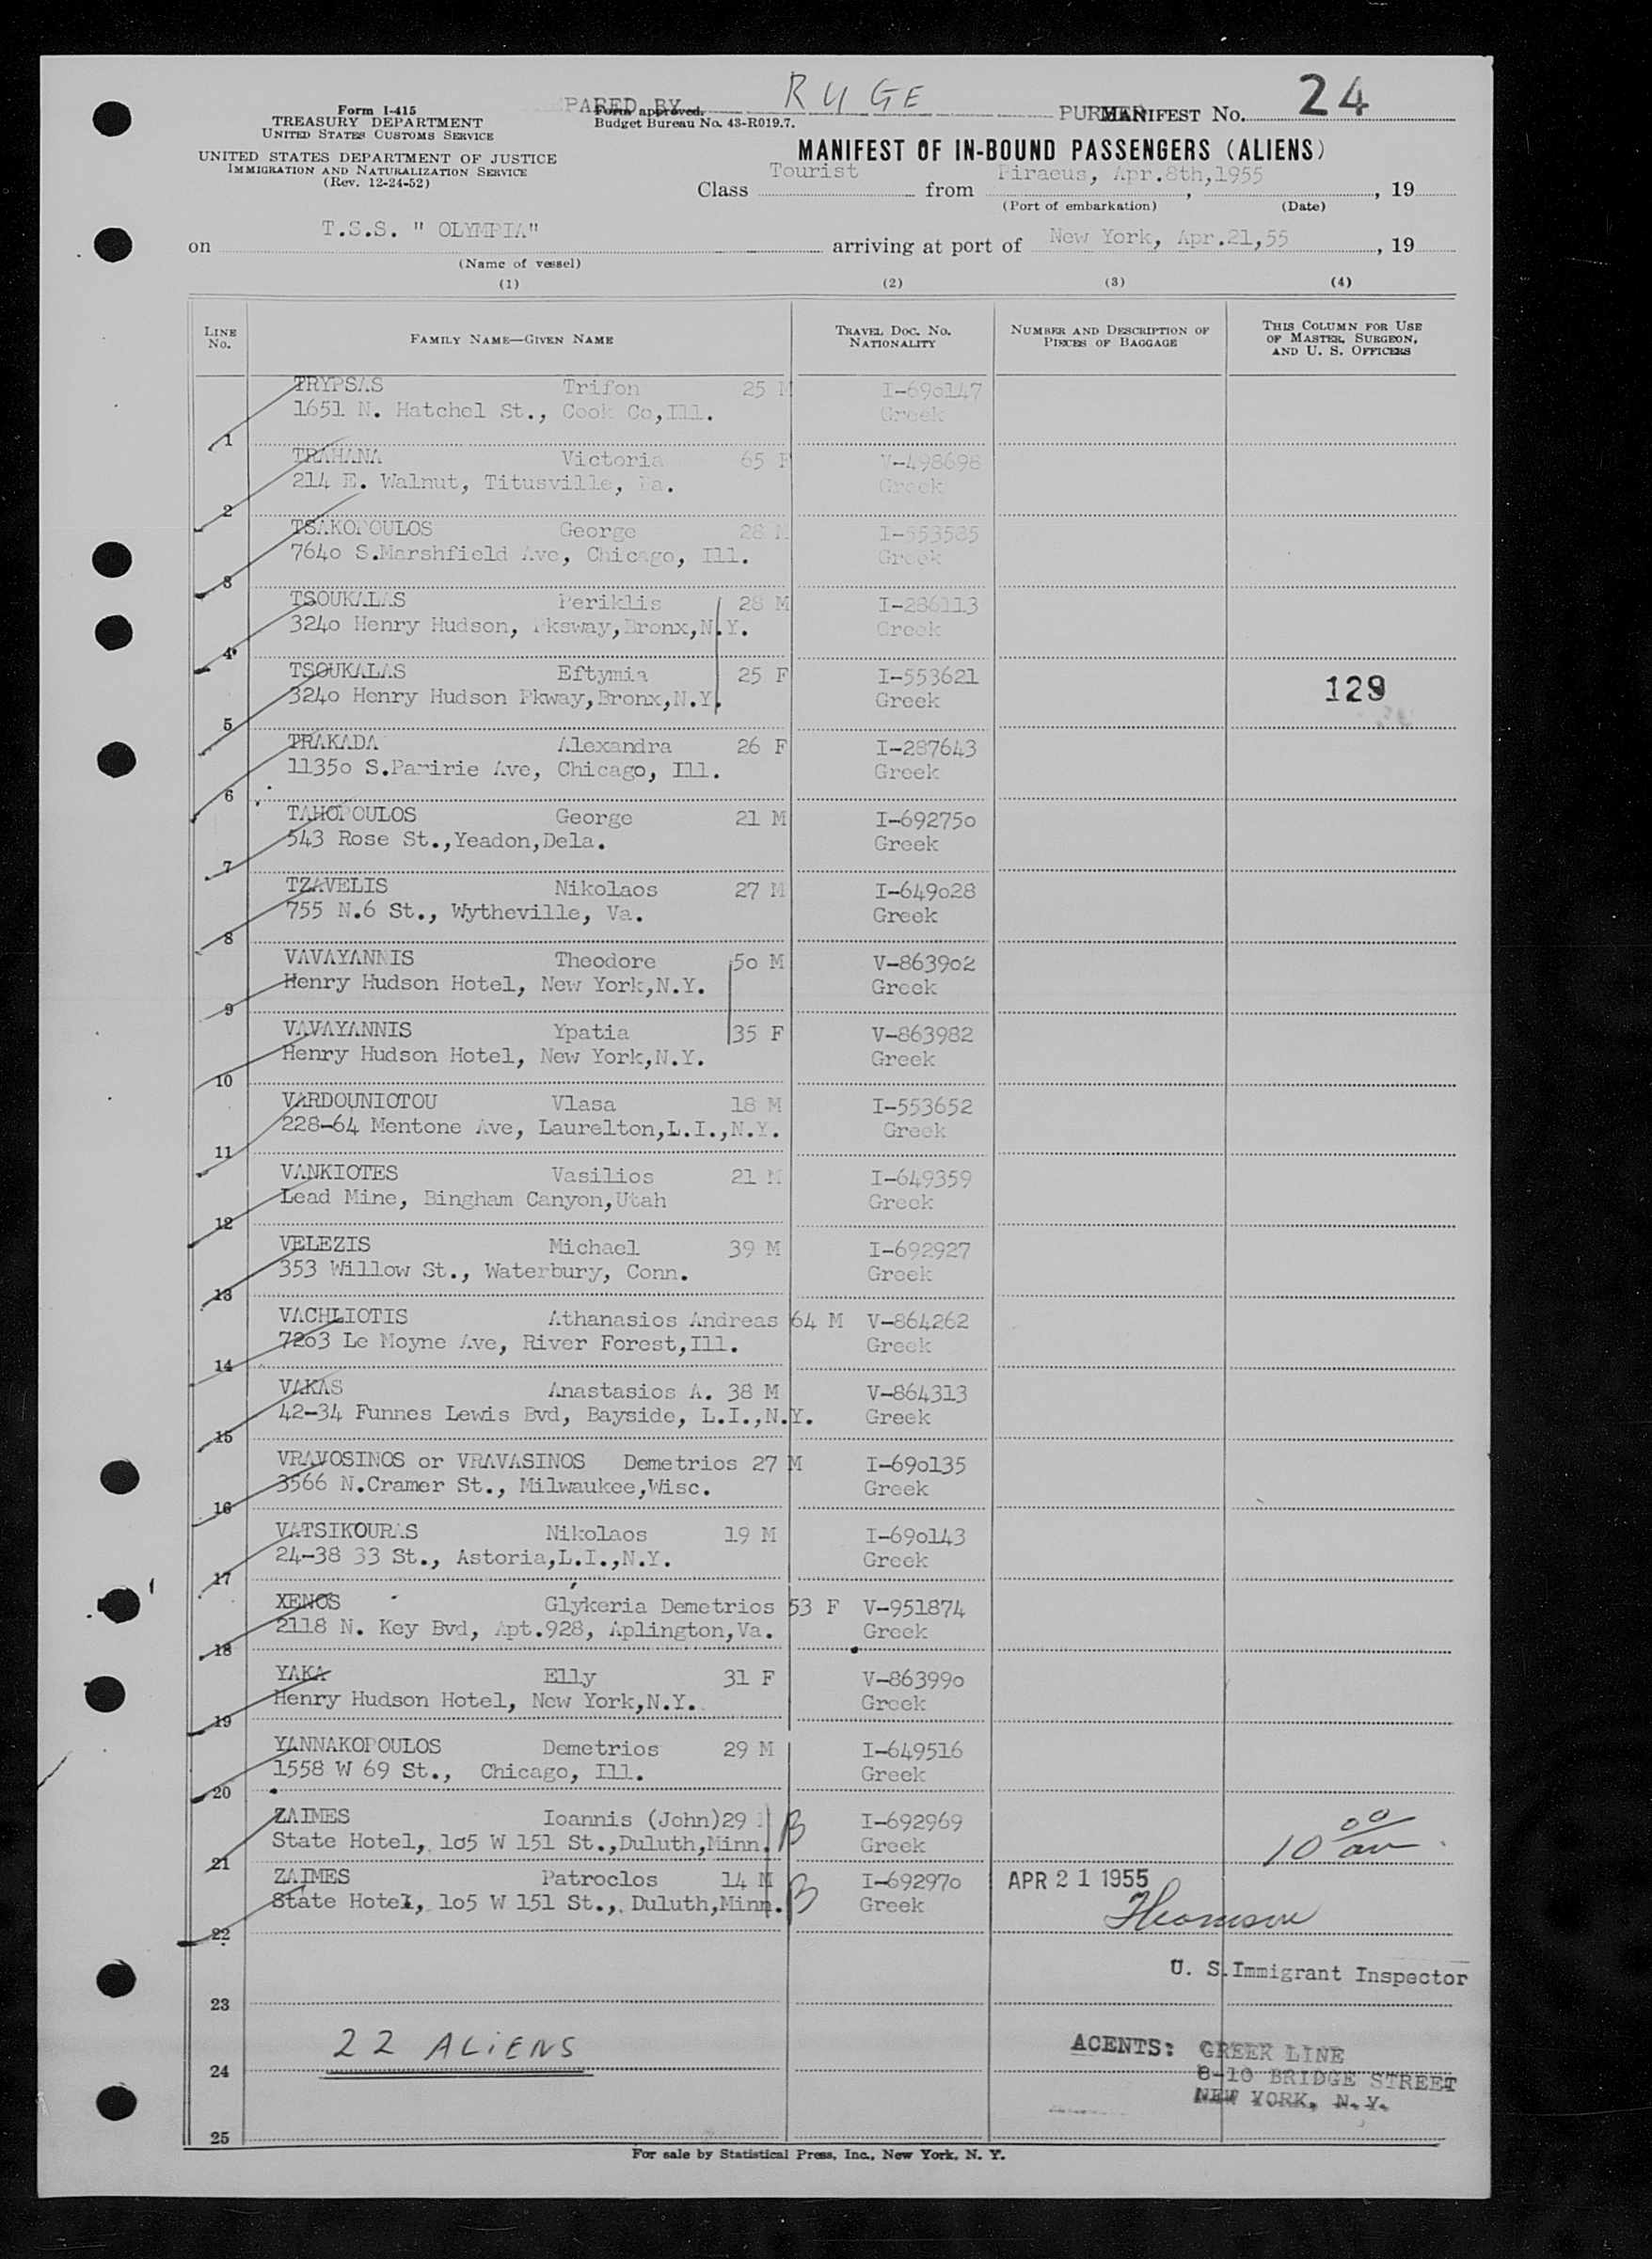 Form I-415
TREASURY DEPARTMENT
UNITED STATES CUSTOMS SERVICE
UNITED STATES DEPARTMENT OF JUSTICE
IMMIGRATION AND NATURALIZATION SERVICE
(Rev. 12-24-52)
PARED BY RUGE PURSER
Form approved.
Budget Bureau No. 43-R019.7.
MANIFEST No. 24
MANIFEST OF IN-BOUND PASSENGERS (ALIENS)
Class Tourist from Piraeus, Apr.8th,1955, 19
(Port of embarkation) (Date)
on T.S.S. " OLYMPIA" arriving at port of New York, Apr.21,55, 19
(Name of vessel)
(1) (2) (3) (4)
LINE No. FAMILY NAME—GIVEN NAME TRAVEL DOC. No. NATIONALITY NUMBER AND DESCRIPTION OF PIECES OF BAGGAGE THIS COLUMN FOR USE OF MASTER, SURGEON, AND U. S. OFFICERS
TRYPSAS Trifon 25 M I-690147
1651 N. Hatchel St., Cook Co,Ill. Greek
1
TRAHANA Victoria 65 F V-498698
214 E. Walnut, Titusville, Pa. Greek
2
TSAKOPOULOS George 28 M I-553585
7640 S.Marshfield Ave, Chicago, Ill. Greek
3
TSOUKALAS Periklis 28 M I-286113
3240 Henry Hudson, Pksway,Bronx,N.Y. Greek
4
TSOUKALAS Eftymia 25 F I-553621
3240 Henry Hudson Pkway,Bronx,N.Y. Greek 129
5
TRAKADA Alexandra 26 F I-287643
11350 S.Paririe Ave, Chicago, Ill. Greek
6
TAHOPOULOS George 21 M I-692750
543 Rose St.,Yeadon,Dela. Greek
7
TZAVELIS Nikolaos 27 M I-649028
755 N.6 St., Wytheville, Va. Greek
8
VAVAYANNIS Theodore 50 M V-863902
Henry Hudson Hotel, New York,N.Y. Greek
9
VAVAYANNIS Ypatia 35 F V-863982
Henry Hudson Hotel, New York,N.Y. Greek
10
VARDOUNIOTOU Vlasa 18 M I-553652
228-64 Mentone Ave, Laurelton,L.I.,N.Y. Greek
11
VANKIOTES Vasilios 21 M I-649359
Lead Mine, Bingham Canyon,Utah Greek
12
VELEZIS Michael 39 M I-692927
353 Willow St., Waterbury, Conn. Greek
13
VACHLIOTIS Athanasios Andreas 64 M V-864262
7203 Le Moyne Ave, River Forest,Ill. Greek
14
VAKAS Anastasios A. 38 M V-864313
42-34 Funnes Lewis Bvd, Bayside, L.I.,N.Y. Greek
15
VRAVOSINOS or VRAVASINOS Demetrios 27 M I-690135
3566 N.Cramer St., Milwaukee,Wisc. Greek
16
VATSIKOURAS Nikolaos 19 M I-690143
24-38 33 St., Astoria,L.I.,N.Y. Greek
17
XENOS Glykeria Demetrios 53 F V-951874
2118 N. Key Bvd, Apt.928, Aplington,Va. Greek
18
YAKA Elly 31 F V-863990
Henry Hudson Hotel, New York,N.Y. Greek
19
YANNAKOPOULOS Demetrios 29 M I-649516
1558 W 69 St., Chicago, Ill. Greek
20
ZAIMES Ioannis (John)29 B I-692969
State Hotel, 105 W 151 St.,Duluth,Minn. Greek 10 00
21
ZAIMES Patroclos 14 M B I-692970 APR 21 1955
State Hotel, 105 W 151 St., Duluth,Minn. Greek
22
U. S. Immigrant Inspector
23
22 ALiENS
AGENTS: GREEK LINE
24
8-10 BRIDGE STREET
NEW YORK, N.Y.
25
For sale by Statistical Press, Inc., New York, N. Y.